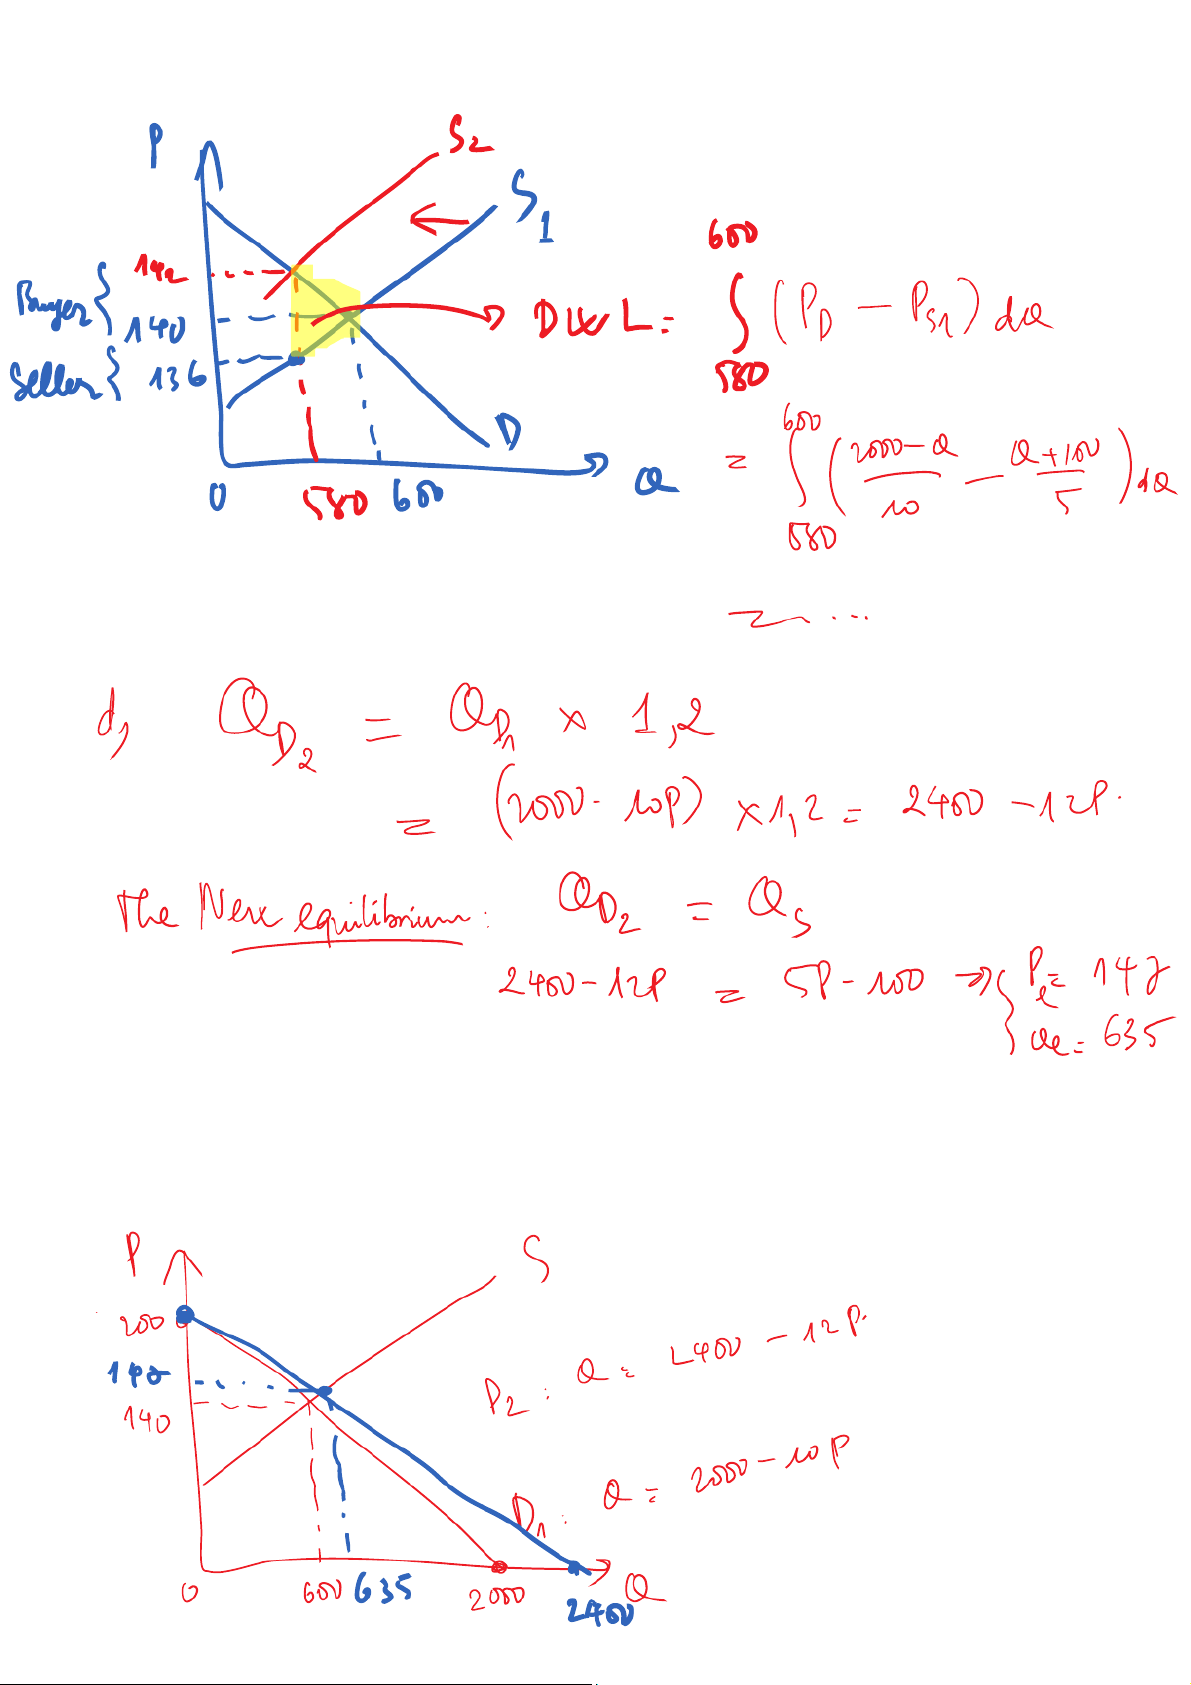 P
S2
S1
600
142
Buyer { 140
DWL = ∫ (P_D − P_S1) dQ
580
Seller { 136
D
0 580 600 Q
600
= ∫ (2000−Q / 10 − Q+100 / 5) dQ
580
= ...
d, Q_D2 = Q_D1 × 1,2
= (2000 - 10P) × 1,2 = 2400 − 12P.
The New equilibrium: Q_D2 = Q_S
2400 − 12P = 5P − 100 => { Pe = 147
Qe = 635
P
S
200
147
140
P2 : Q = 2400 − 12P.
D1 : Q = 2000 − 10P
0 600 635 2000 2400 Q